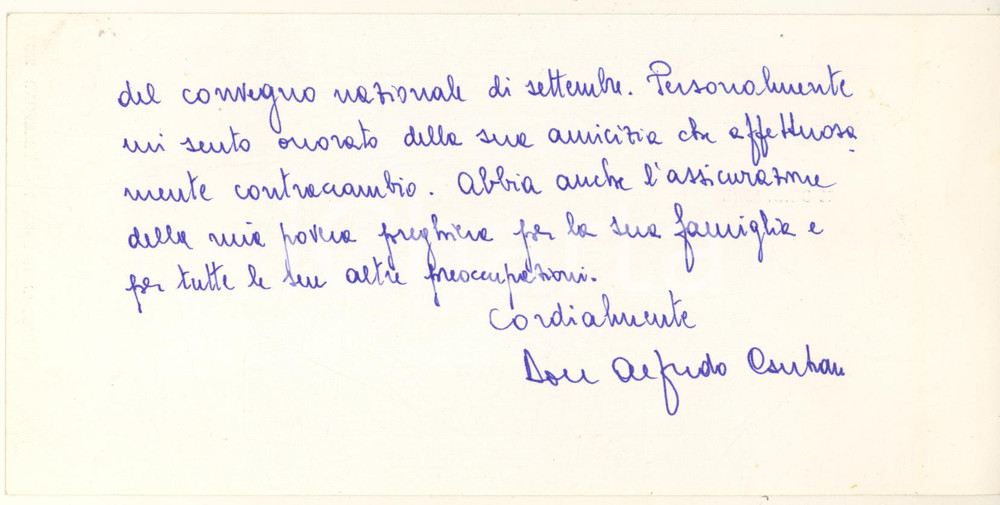 del convegno nazionale di settembre. Personalmente
mi sento onorato della sua amicizia che affettuosa
mente contraccambio. Abbia anche l'assicurazione
della mia povera preghiera per la sua famiglia e
per tutte le sue altre preoccupazioni.
Cordialmente
Don Alfredo